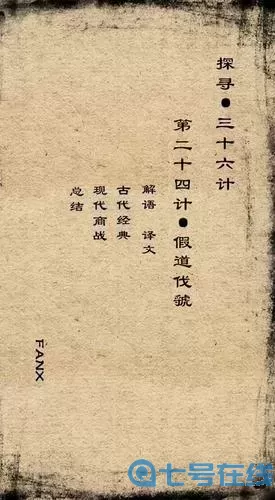 探寻●三十六计
第二十四计●假道伐虢
解语 译文
古代经典
现代商战
总结
FANX
七号在线